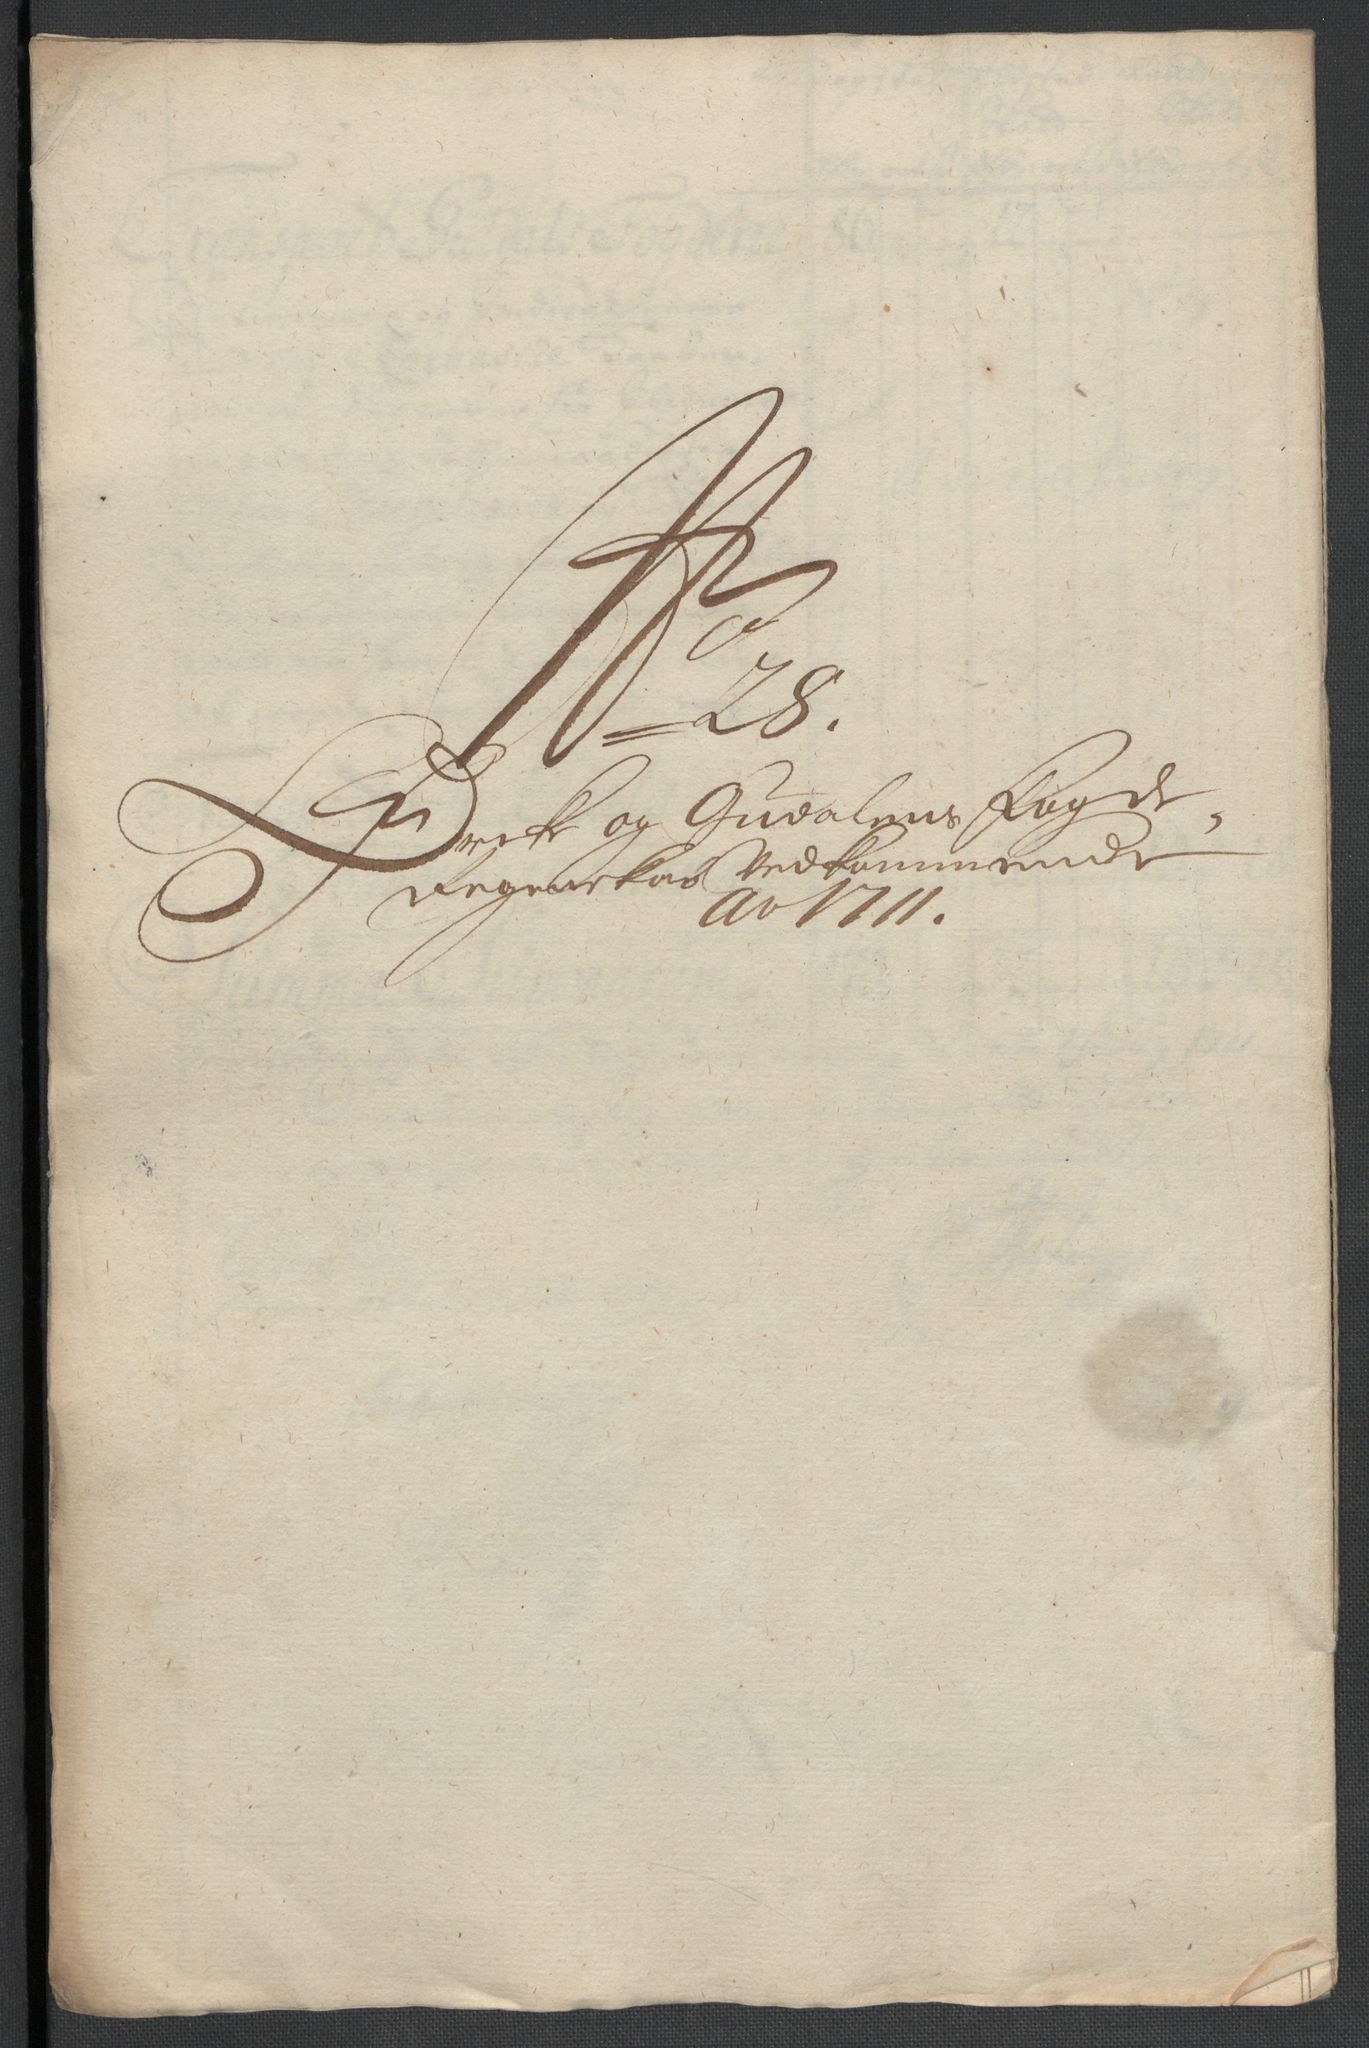 No
28.
Örcke og Guldalens Fogde,
Regenskab Vedkommende
Ao 1711.